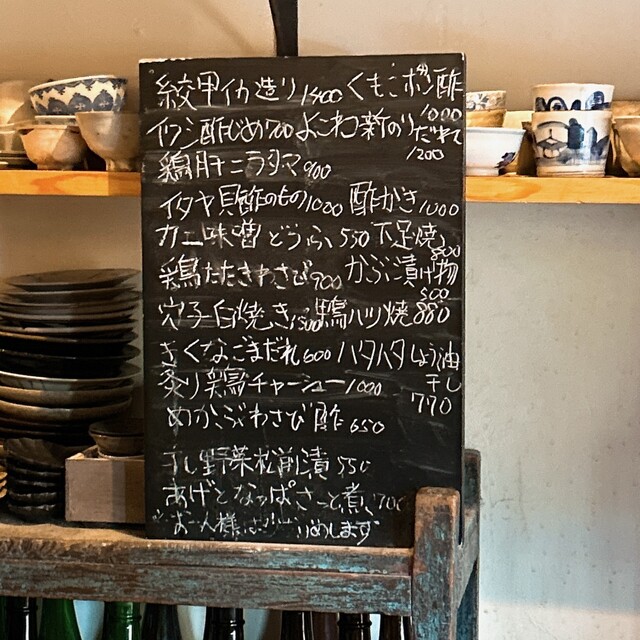 紋甲イカ造り1400 くもこポン酢1000
イワシ酢じめ700 よこわ新のりだれで1200
鶏肝ニラタマ900
イタヤ貝酢のもの1000 酢がき1000
カニ味噌どうふ550 下足焼800
鶏たたきわさび900 かぶ漬け物500
穴子白焼き1500 鶏ハツ焼880
きくなごまだれ600 ハタハタしょう油干し770
炙り鶏チャーシュー1000
めかぶわさび酢650
干し野菜松前漬550
あげとなっぱさっと煮700
お一人様
めします